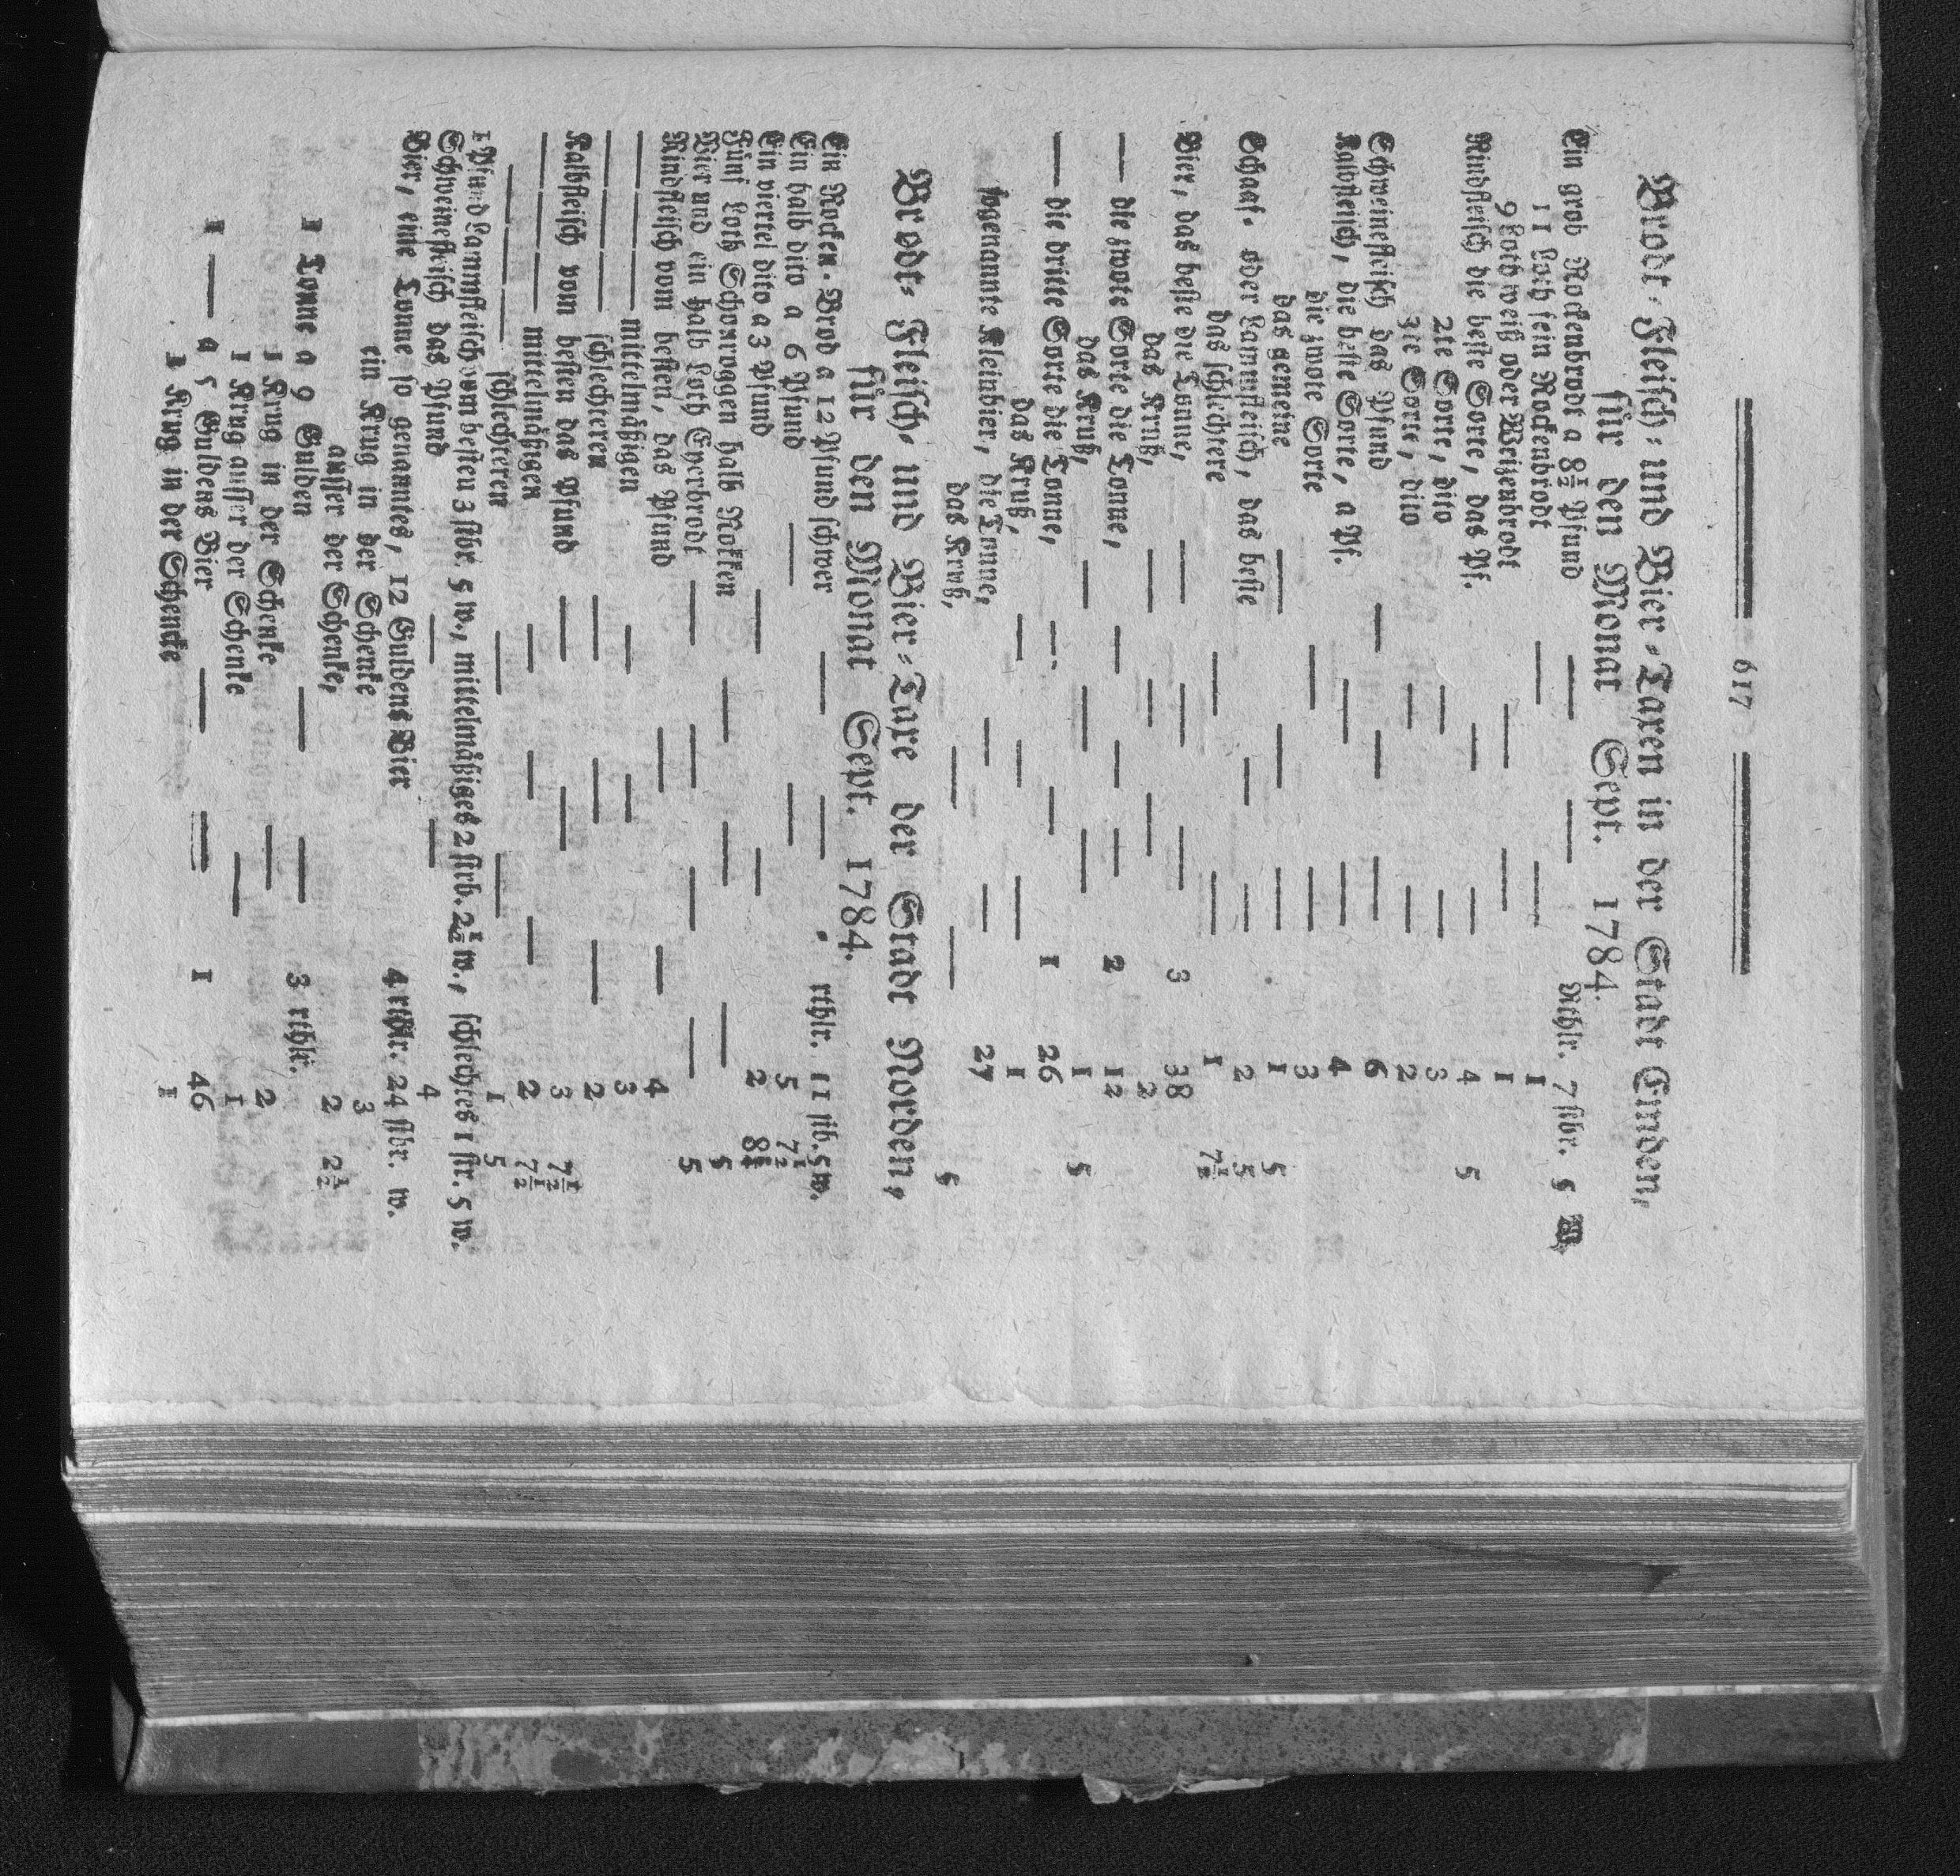 617
Brodt- Fleisch- und Bier-Taxen in der Stadt Emden,
für den Monat Sept. 1784.
Ein grob Rockenbrodt a 8½ Pfund — — Rthlr. 7 stbr. 5 W
11 Loth fein Rockenbrodt — — 1
9 Loth weiß oder Weizenbrodt — — 1
Rindfleisch die beste Sorte, das Pf. — — 4 5
2te Sorte, dito — — 3
3te Sorte, dito — — 2
Schweinefleisch das Pfund — — — 6
Kalbfleisch, die beste Sorte, a Pf. — — 4
die zwote Sorte — — 3
das gemeine — — — 1 5
Schaaf- oder Lammfleisch, das beste — — 2 5
das schlechtere — — 1 7½
Bier, das beste die Tonne, — — — 3 38
das Kruß, — — — 2
— die zwote Sorte die Tonne, — — — 2 12
das Kruß, — — — 1 5
— die dritte Sorte die Tonne, — — 1 26
das Kruß, — — — 1
sogenannte Kleinbier, die Tonne, — — 27
das Kruß, — — 5
Brodt- Fleisch- und Bier-Taxe der Stadt Norden,
für den Monat Sept. 1784.
Ein Rocken-Brod a 12 Pfund schwer — — rthlr. 11 stb. 5 w.
Ein halb dito a 6 Pfund — — 5 7½
Ein viertel dito a 3 Pfund — — 2 8¾
Fünf Loth Schonroggen halb Rocken — — — 5
Vier und ein halb Loth Eyerbrodt — — — — 5
Rindfleisch vom besten, das Pfund — — 4
— — — mittelmäßigen — — 3
— — — schlechteren — — — 2
Kalbfleisch vom besten das Pfund — — 3 7½
— — — mittelmäßigen — — — 2 7½
— — — schlechteren — — 1 5
1 Pfund Lammfleisch vom besten 3 stbr. 5 w., mittelmäßiges 2 strb. 2½ w., schlechtes 1 str. 5 w.
Schweinefleisch das Pfund — — 4
Bier, eine Tonne so genanntes, 12 Guldens Bier 4 rthlr. 24 stbr. w.
ein Krug in der Schenke 3
ausser der Schenke, 2 2½
1 Tonne a 9 Gulden — — 3 rthlr.
1 Krug in der Schenke — 2
1 Krug ausser der Schenke — 1
1 — a 5 Guldens Bier — — 1 46
1 Krug in der Schenke 1